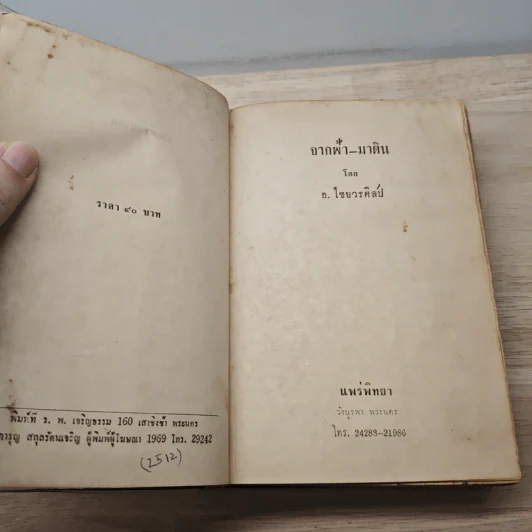 ราคา ๔๐ บาท
พิมพ์ที่ ร. พ. เจริญธรรม 160 เสาชิงช้า พระนคร
การุญ สกุลรัตนเจริญ ผู้พิมพ์ผู้โฆษณา 1969 โทร. 29242
(2512)
จากฟ้า–มาดิน
โดย
อ. ไชยวรศิลป์
แพร่พิทยา
วังบูรพา พระนคร
โทร. 24283-21986